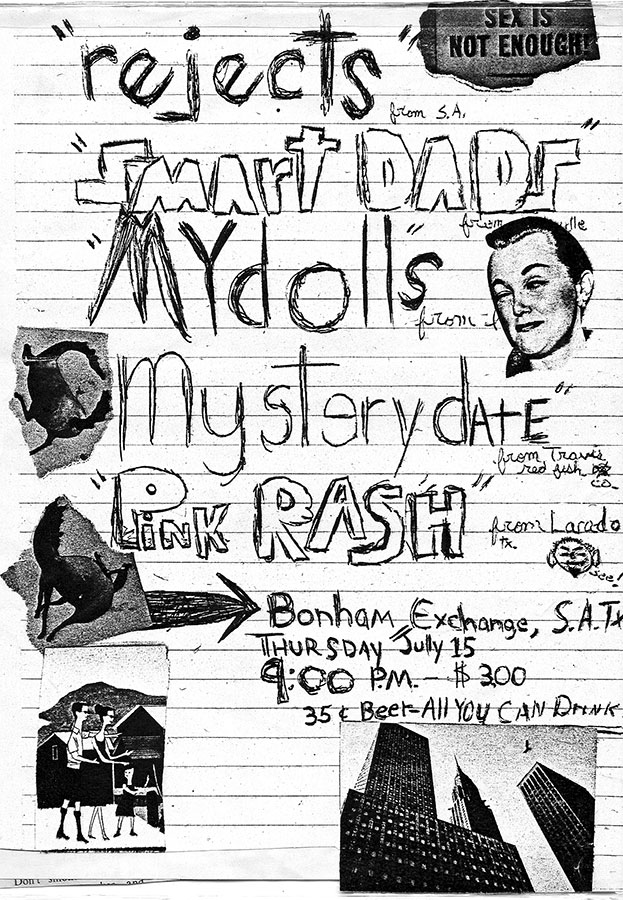 SEX IS
NOT ENOUGH!
"rejects"
from S.A.
"SMART DADS"
from
"MYdoll's"
from
mystery dATE"
from Travis
red fish
co.
"PINK RASH"
from Larado
tx.
see!
Bonham Exchange, S.A. Tx
THURSDAY July 15
9:00 P.M. – $ 300
35 ¢ Beer–All YOU CAN DRINK
Don't